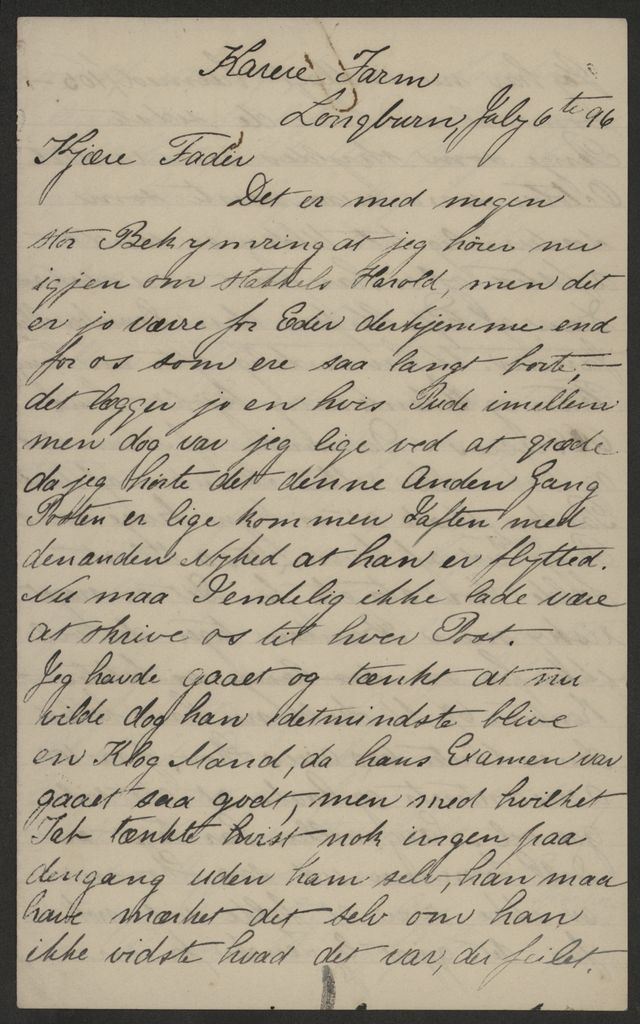 Karere Farm
Longburn, July 6te 96
Kjære Fader
Det er med megen
stor Bekymring at jeg hører nu
igjen om stakkels Harold, men det
er jo værre for Eder derhjemme end
for os som ere saa langt borte, —
det lægger jo en hvis Pude imellem
men dog var jeg lige ved at græde
da jeg hørte det denne Anden Gang
Posten er lige kommen Iaften med
den anden Nyhed at han er flytted.
Nu maa I endelig ikke lade være
at skrive os til hver Post.
Jeg havde gaaet og tænkt at nu
vilde dog han detmindste blive
en Klog Mand, da hans Examen var
gaaet saa godt, men med hvilket
Tab tænkte hvist nok ingen paa
dengang uden ham selv, han maa
have mærket det selv om han
ikke vidste hvad det var, der feilet.